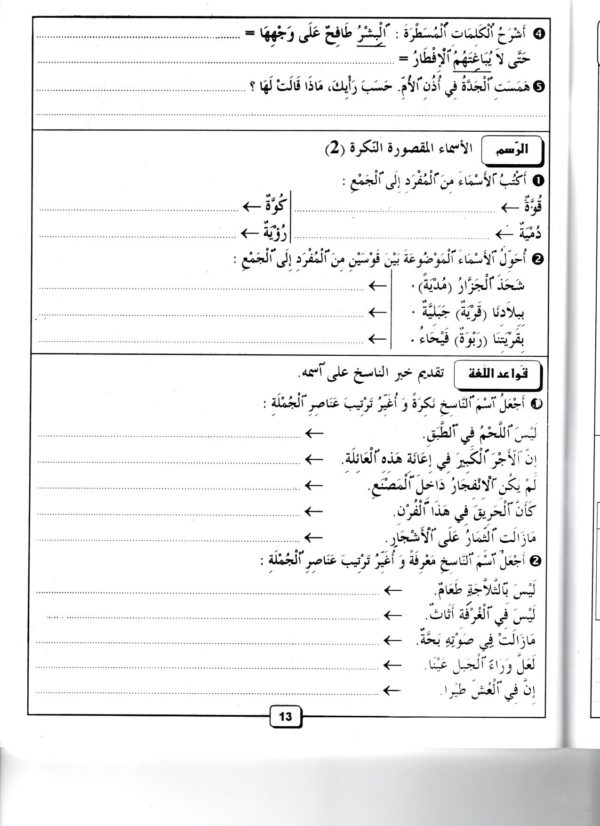 ❹ أَشْرَحُ ٱلْكَلِمَاتِ ٱلْمُسَطَّرَةَ : ٱلْبِشْرُ طَافِحٌ عَلَى وَجْهِهَا =
حَتَّى لاَ يُبَاغِتَهُمُ ٱلْإِفْطَارُ =
❺ هَمَسَتِ ٱلْجَدَّةُ فِي أُذُنِ ٱلْأُمِّ. حَسَبَ رَأْيِكَ، مَاذَا قَالَتْ لَهَا ؟
الرّسم الأسماء المقصورة النّكرة (2)
❶ أَكْتُبُ ٱلْأَسْمَاءَ مِنَ ٱلْمُفْرَدِ إِلَى ٱلْجَمْعِ :
قُوَّةٌ ← كُوَّةٌ ←
دُمْيَةٌ ← رُؤْيَةٌ ←
❷ أُحَوِّلُ ٱلْأَسْمَاءَ ٱلْمَوْضُوعَةَ بَيْنَ قَوْسَيْنِ مِنَ ٱلْمُفْرَدِ إِلَى ٱلْجَمْعِ :
شَحَذَ ٱلْجَزَّارُ (مُدْيَةً). ←
بِبِلاَدِنَا (قَرْيَةٌ) جَبَلِيَّةٌ . ←
بِقَرْيَتِنَا (رَبْوَةٌ) فَيْحَاءُ . ←
قواعد اللّغة تقديم خبر الناسخ على ٱسمه.
❶ أَجْعَلُ ٱسْمَ ٱلنَّاسِخِ نَكِرَةً وَ أُغَيِّرُ تَرْتِيبَ عَنَاصِرِ ٱلْجُمْلَةِ :
لَيْسَ ٱللَّحْمُ فِي ٱلطَّبَقِ. ←
إِنَّ ٱلْأَجْرَ ٱلْكَبِيرَ فِي إِعَانَةِ هَذِهِ ٱلْعَائِلَةِ. ←
لَمْ يَكُنِ ٱلْاِنْفِجَارُ دَاخِلَ ٱلْمَصْنَعِ. ←
كَأَنَّ ٱلْحَرِيقَ فِي هَذَا ٱلْفُرْنِ. ←
مَازَالَتِ ٱلثِّمَارُ عَلَى ٱلْأَشْجَارِ. ←
❷ أَجْعَلُ ٱسْمَ ٱلنَّاسِخِ مَعْرِفَةً وَ أُغَيِّرُ تَرْتِيبَ عَنَاصِرِ ٱلْجُمْلَةِ :
لَيْسَ بِٱلثَّلَّاجَةِ طَعَامٌ. ←
لَيْسَ فِي ٱلْغُرْفَةِ أَثَاثٌ. ←
مَازَالَتْ فِي صَوْتِهِ بَحَّةٌ. ←
لَعَلَّ وَرَاءَ ٱلْجَبَلِ عَيْنًا. ←
إِنَّ فِي ٱلْعُشِّ طَيْرًا. ←
13